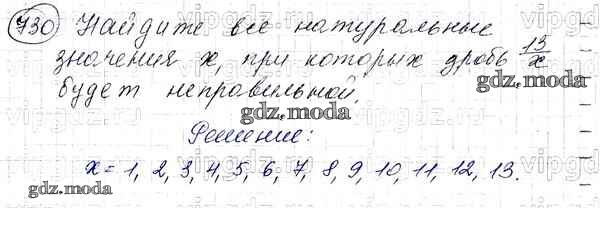 730 Найдите все натуральные
значения x, при которых дробь 13/x
будет неправильной.
gdz.moda
gdz.moda
Решение:
x = 1, 2, 3, 4, 5, 6, 7, 8, 9, 10, 11, 12, 13.
gdz.moda